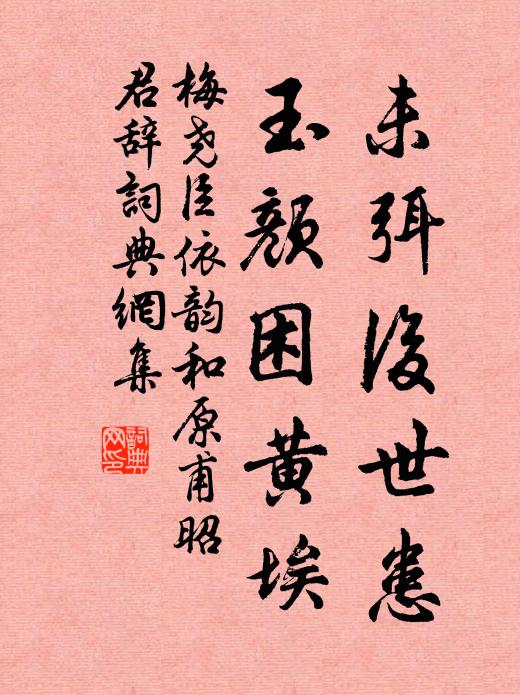 未弭後世患
玉颜困黄埃
梅尧臣依韵和原甫昭
君辞詞典網集
詞典
网印